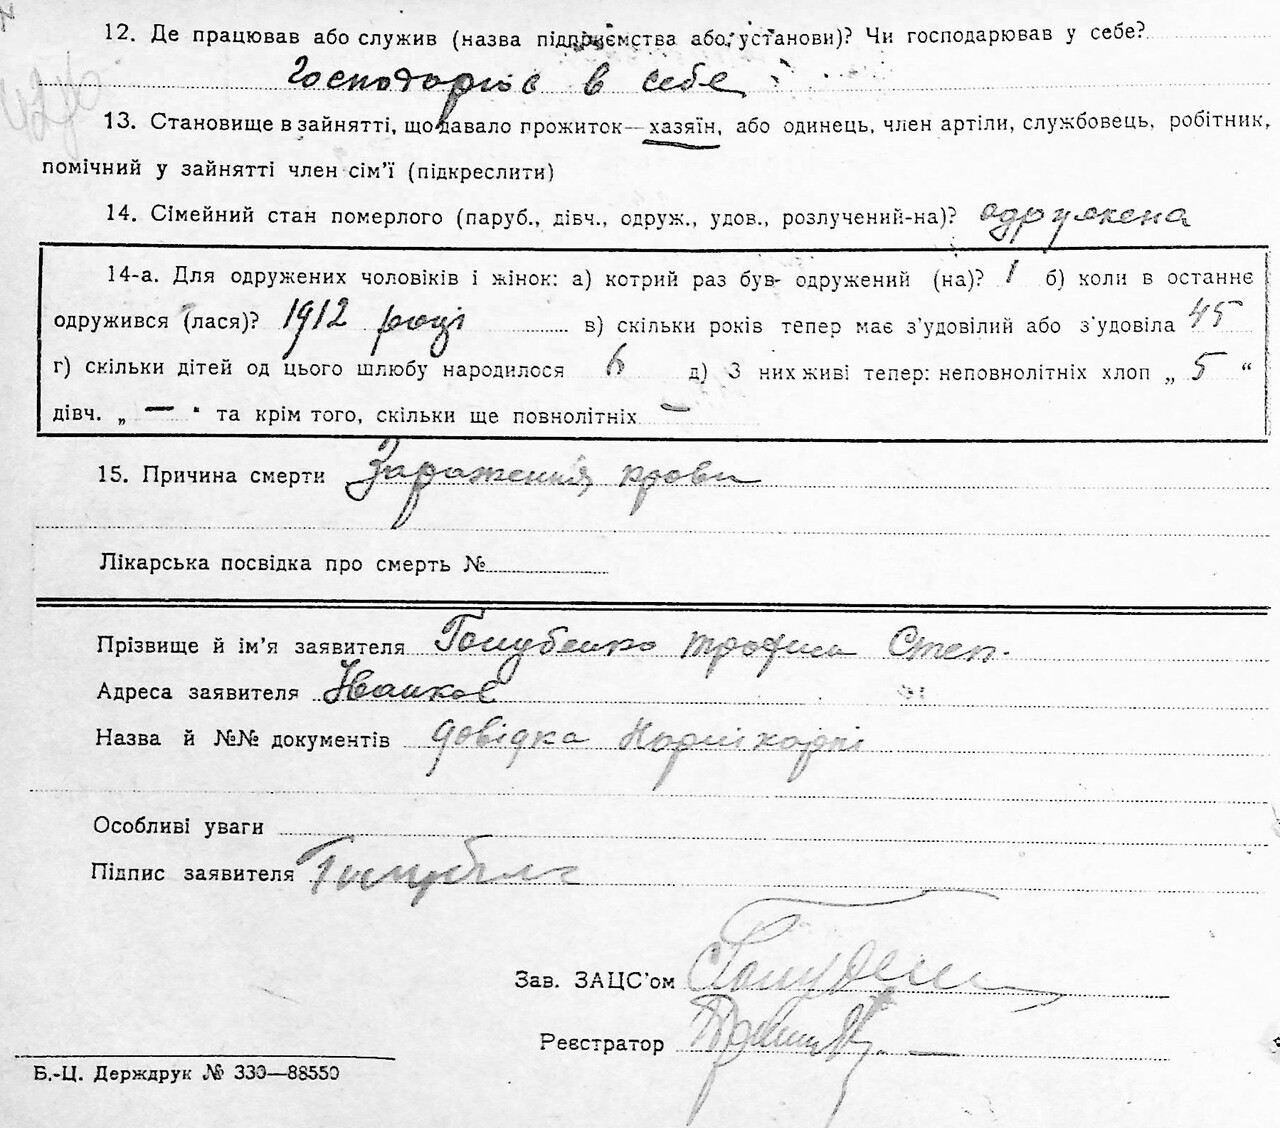 12. Де працював або служив (назва підприємства або установи)? Чи господарював у себе?
Господарює в себе
13. Становище в зайнятті, що давало прожиток—хазяїн, або одинець, член артіли, службовець, робітник,
помічний у зайнятті член сім'ї (підкреслити)
14. Сімейний стан померлого (паруб., дівч., одруж., удов., розлучений-на)? одружена
14-а. Для одружених чоловіків і жінок: а) котрий раз був- одружений (на)? 1 б) коли в останнє
одружився (лася)? 1912 році в) скільки років тепер має з'удовілий або з'удовіла 45
г) скільки дітей од цього шлюбу народилося 6 д) З них живі тепер: неповнолітніх хлоп „ 5 “
дівч. „ — " та крім того, скільки ще повнолітніх —
15. Причина смерти Зараження крови
Лікарська посвідка про смерть №
Прізвище й ім'я заявителя Голубенко Трофим Степ.
Адреса заявителя Іванков
Назва й №№ документів довідка
Особливі уваги
Підпис заявителя
Зав. ЗАЦС'ом
Реєстратор
Б.-Ц. Держдрук № 330—88550